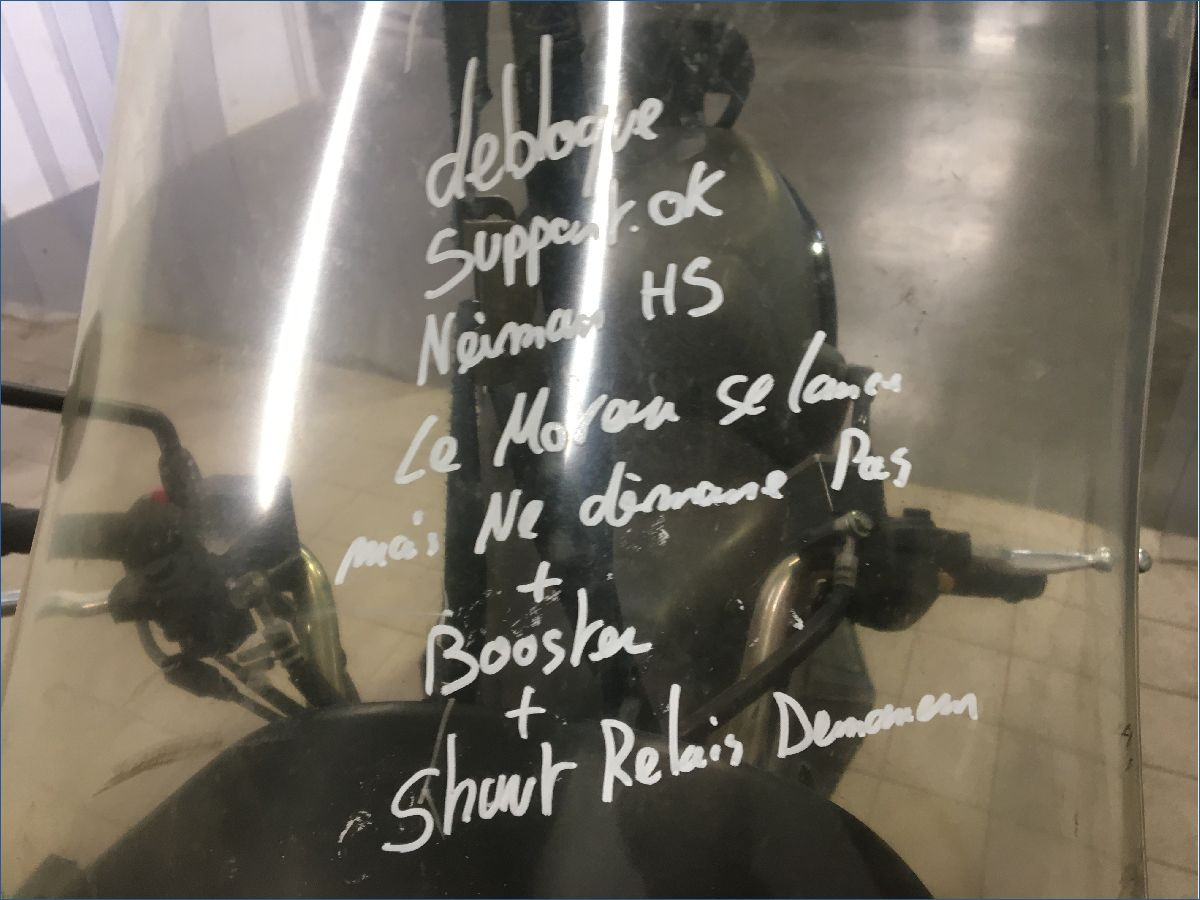 debloque
Support. ok
Neiman HS
Le Moteur se lance
mais Ne démarre Pas
+
Booster
+
Shunt Relais Demarreur